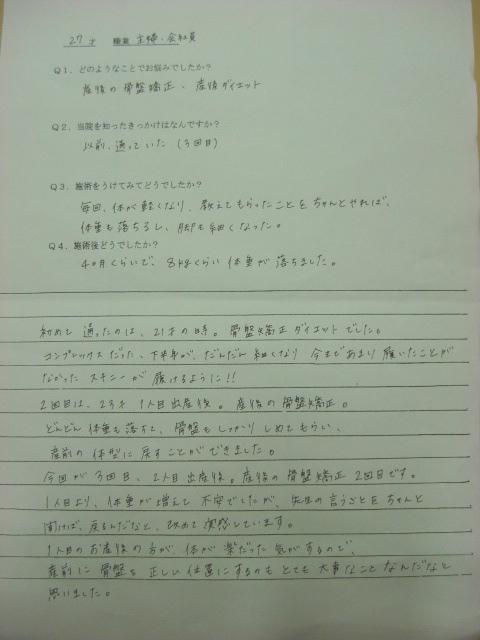 27才 職業 主婦・会社員
Q1. どのようなことでお悩みでしたか?
産後の骨盤矯正、産後ダイエット
Q2. 当院を知ったきっかけはなんですか?
以前、通っていた(3回目)
Q3. 施術をうけてみてどうでしたか?
毎回、体が軽くなり、教えてもらったことをちゃんとやれば、
体重も落ちるし、脚も細くなった。
Q4. 施術後どうでしたか?
4ヶ月くらいで、8kgくらい体重が落ちました。
初めて通ったのは、21才の時。骨盤矯正ダイエットでした。
コンプレックスだった、下半身が、だんだん細くなり 今まであまり履いたことが
なかった スキニーが 履けるように!!
2回目は、23才 1人目出産後。産後の骨盤矯正。
どんどん体重も落ちて、骨盤もしっかりしめてもらい、
産前の体型に戻すことができました。
今回が3回目、2人目出産後。産後の骨盤矯正 2回目です。
1人目より、体重が増えて不安でしたが、先生の言うことをちゃんと
聞けば、戻るんだなと、改めて実感しています。
1人目のお産後の方が、体が楽だった気がするので、
産前に骨盤を正しい位置にするのもとても大事なことなんだなと
思いました。